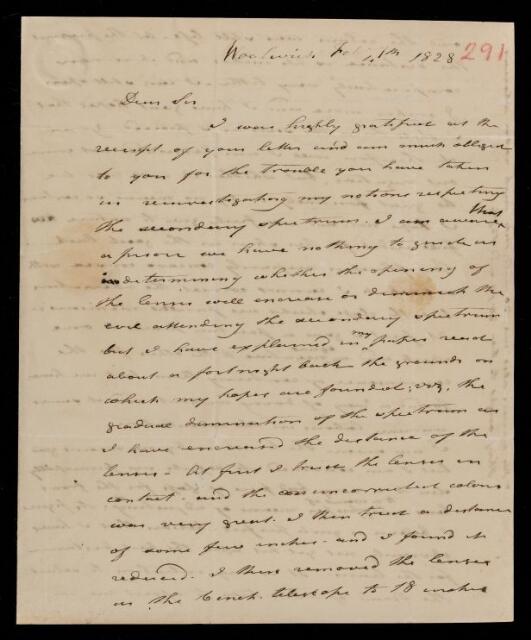 Woolwich Feb 4th 1828 291
Dear Sir
I was highly gratified at the
receipt of your letter and am much obliged
to you for the trouble you have taken
in reinvestigating my notions respecting
the secondary spectrum. I am aware that
a priori we have nothing to guide us
in determining whether the opening of
the lenses will encrease or diminish the
evil attending the secondary spectrum
but I have explained in my paper read
about a fortnight back the grounds on
which my hopes are founded; viz. the
gradual diminution of the spectrum as
I have encreased the distance of the
lenses. At first I tried the lenses in
contact. and the uncorrected colour
was very great. I then tried a distance
of some few inches. and I found it
reduced. I then removed the lenses
in the 6 inch. telescope to 18 inches